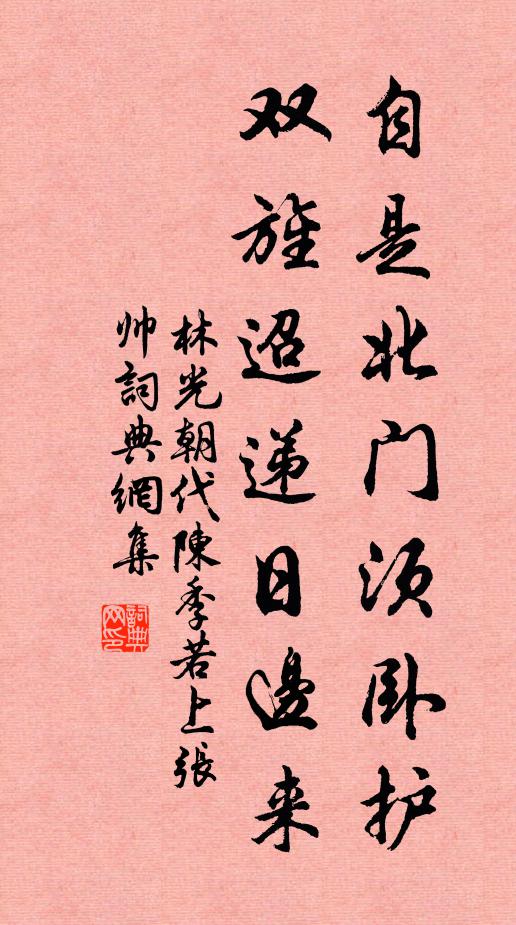 自是北门须卧护
双旌迢递日邊来
林光朝代陳季若上張
帅詞典網集
詞典网印